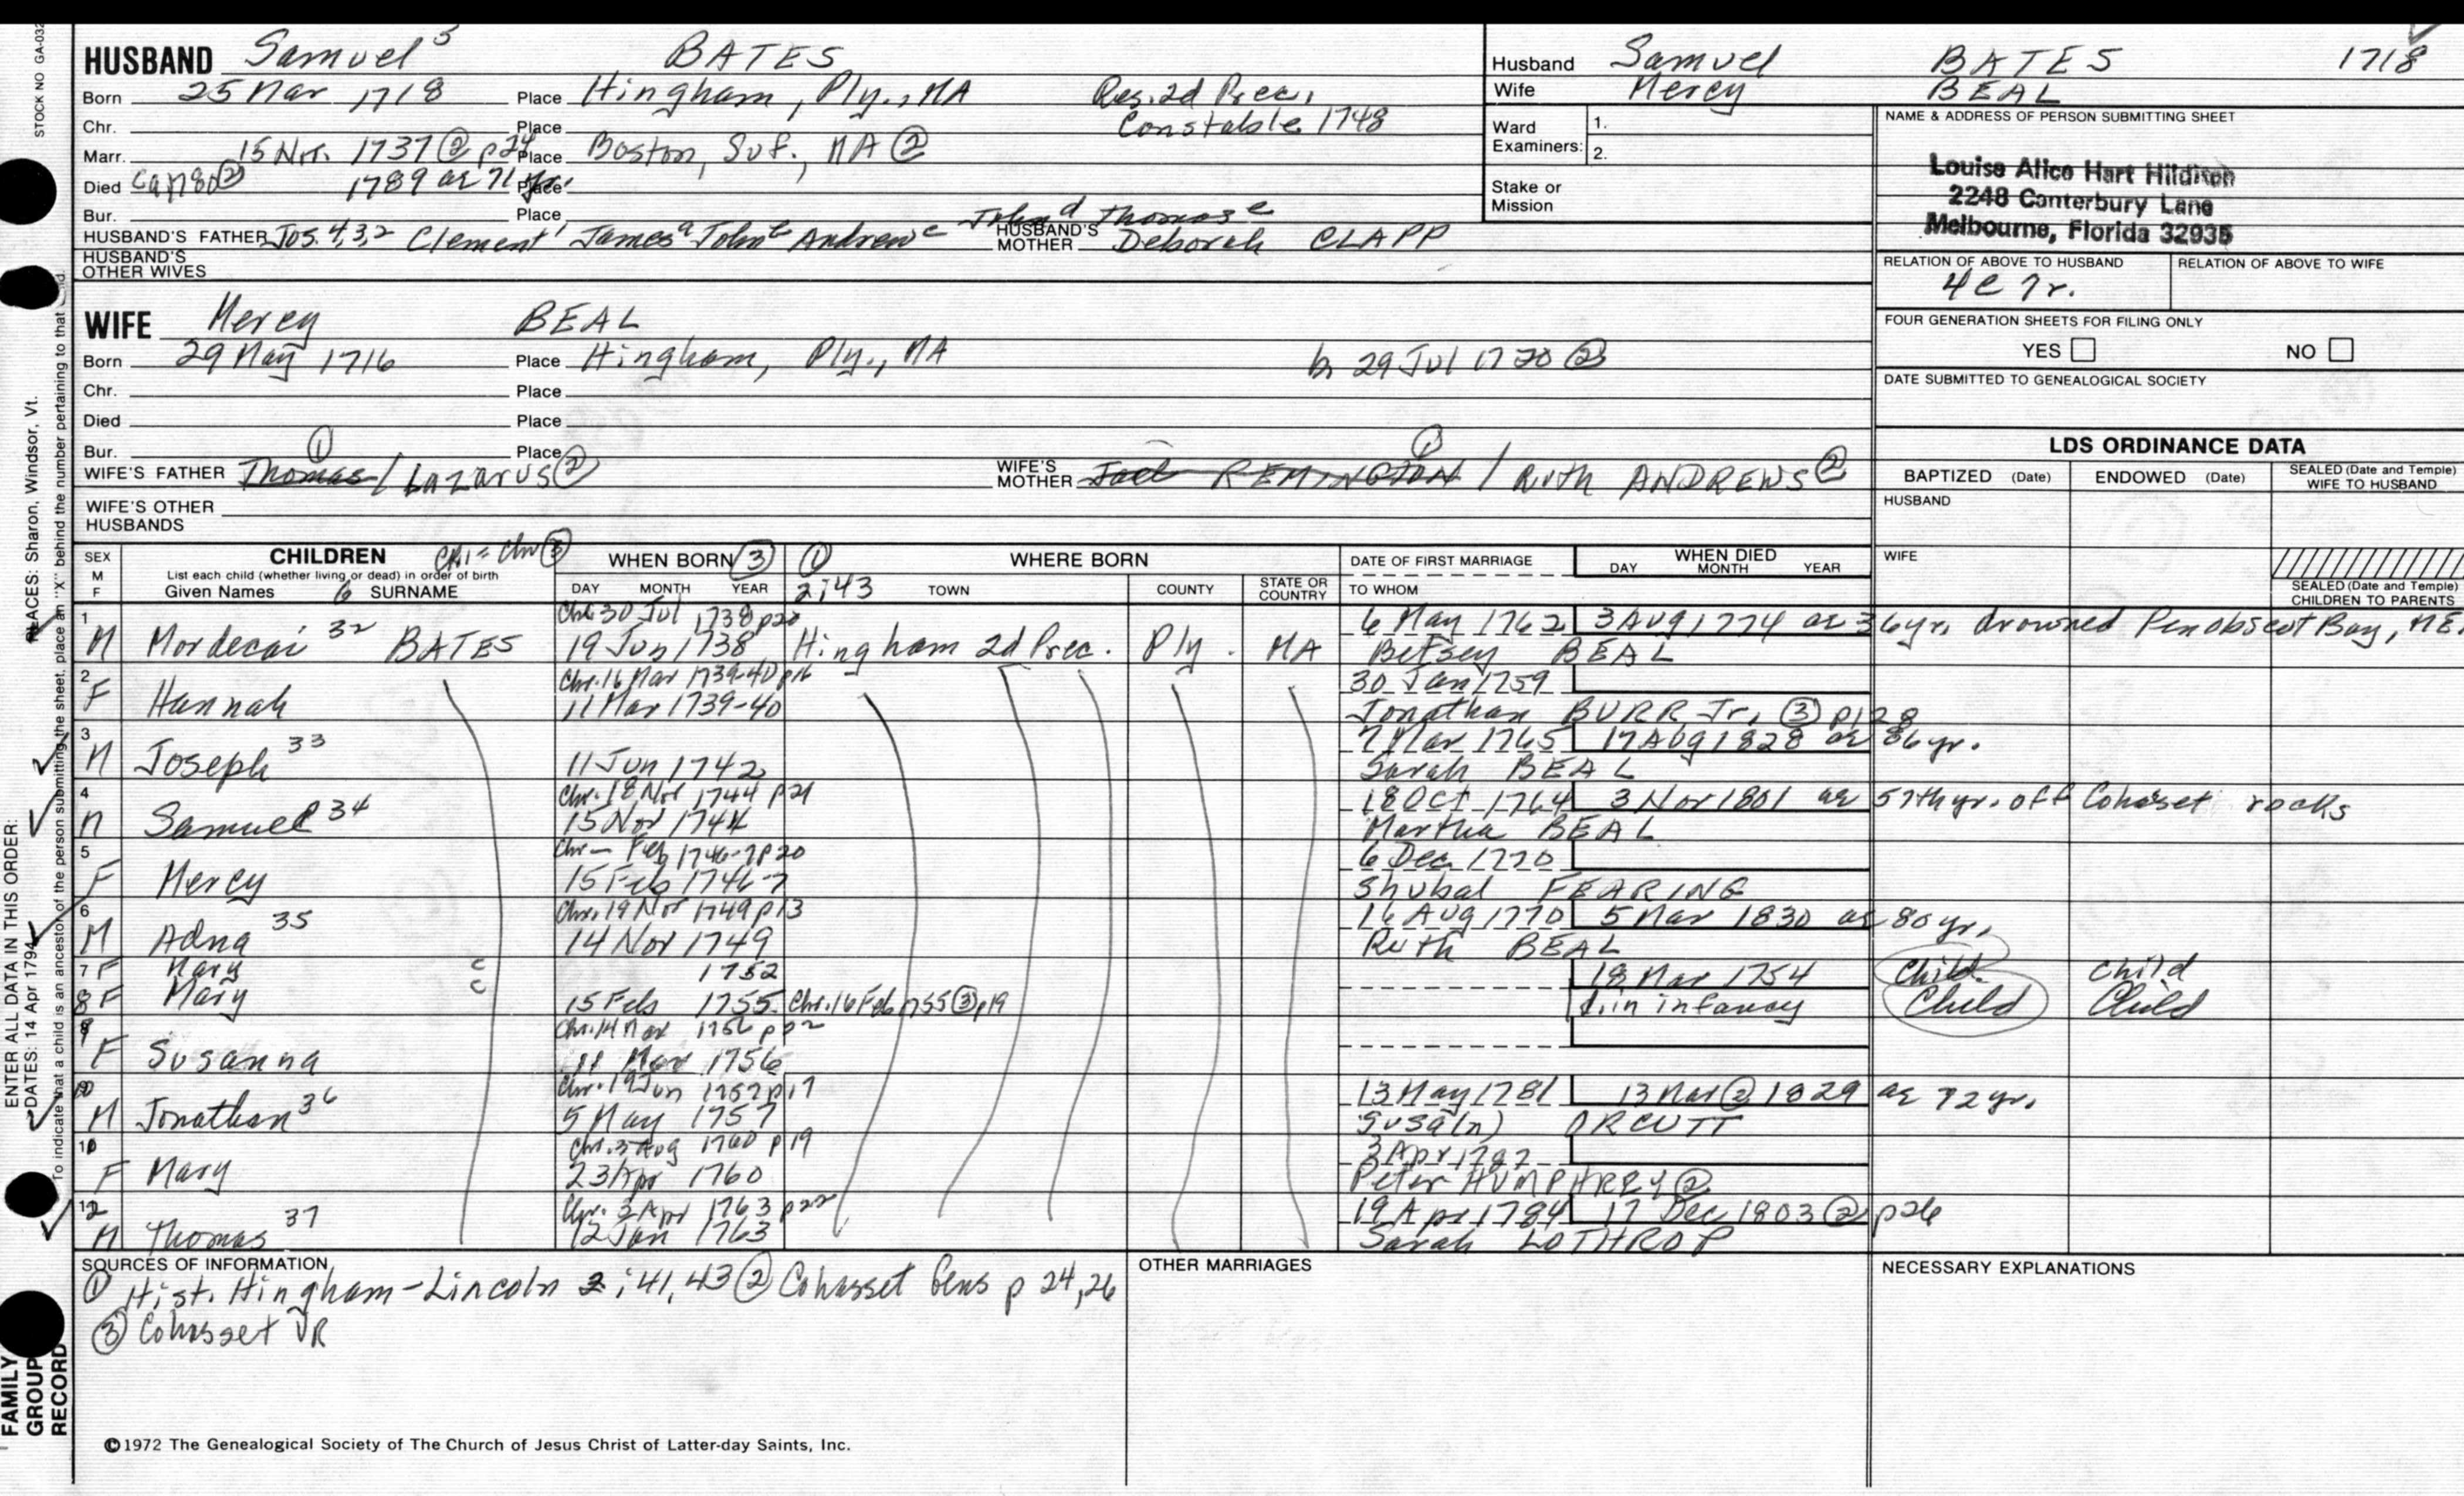 STOCK NO GA-032
HUSBAND Samuel 5 BATES
Born 25 Mar 1718 Place Hingham, Ply., MA Res. 2d Prec.,
Chr. Place Constable 1748
Marr. 15 Nov. 1737 ② p24 Place Boston, Suf., MA ②
Died ② 1789 ae 71 yr. Place
Bur. Place John d Thomas e
HUSBAND'S FATHER Jos. 4,3,2 Clement 1 James a John b Andrew c HUSBAND'S MOTHER Deborah CLAPP
HUSBAND'S OTHER WIVES
Husband Samuel BATES 1718
Wife Mercy BEAL
Ward Examiners: 1.
2.
Stake or Mission
NAME & ADDRESS OF PERSON SUBMITTING SHEET
Louise Alice Hart Hilditch
2248 Canterbury Lane
Melbourne, Florida 32935
RELATION OF ABOVE TO HUSBAND RELATION OF ABOVE TO WIFE
4c 7r.
FOUR GENERATION SHEETS FOR FILING ONLY
YES NO
DATE SUBMITTED TO GENEALOGICAL SOCIETY
WIFE Mercy BEAL
Born 29 May 1716 Place Hingham, Ply., MA b 29 Jul 1720 ②
Chr. Place
Died Place
Bur. ① Place ①
WIFE'S FATHER Thomas / Lazarus ② WIFE'S MOTHER Jael REMINGTON / Ruth ANDREWS ②
WIFE'S OTHER HUSBANDS
LDS ORDINANCE DATA
BAPTIZED (Date) ENDOWED (Date) SEALED (Date and Temple) WIFE TO HUSBAND
HUSBAND
WIFE
SEALED (Date and Temple) CHILDREN TO PARENTS
SEX M F CHILDREN List each child (whether living or dead) in order of birth Given Names 6 SURNAME
WHEN BORN ③ DAY MONTH YEAR
① 2;43 WHERE BORN TOWN COUNTY STATE OR COUNTRY
DATE OF FIRST MARRIAGE TO WHOM
WHEN DIED DAY MONTH YEAR
1 Chr. 30 Jul 1738 p20 6 May 1762 3 Aug 1774 ae 36yr. drowned Penobscot Bay, ME.
M Mordecai 32 BATES 19 Jun 1738 Hingham 2d Prec. Ply. MA Betsey BEAL
2 Chr. 16 Mar 1739-40 p16 30 Jan 1759
F Hannah 11 Mar 1739-40 Jonathan BURR, Jr. ③ p128
3 7 Mar 1765 17 Aug 1828 ae 86 yr.
M Joseph 33 11 Jun 1742 Sarah BEAL
4 Chr. 18 Nov 1744 p21 18 Oct 1764 3 Nov 1801 ae 57th yr. off Cohasset rocks
M Samuel 34 15 Nov 1744 Martha BEAL
5 Chr — Feb 1746-7 p20 6 Dec 1770
F Mercy 15 Feb 1746-7 Shubal FEARING
6 Chr. 19 Nov 1749 p13 16 Aug 1770 5 Mar 1830 ae 80 yr.
M Adna 35 14 Nov 1749 Ruth BEAL
7 F Mary c 1752 18 Mar 1754 Child Child
8 F Mary c 15 Feb 1755 Chr. 16 Feb 1755 ③ p19 d. in infancy Child Child
9 Chr. 14 Mar 1756 p22
F Susanna 11 Mar 1756
10 Chr. 19 Jun 1757 p17 13 May 1781 13 Mar ② 1829 ae 72 yr.
M Jonathan 36 5 May 1757 Susa(n) ORCUTT
Chr. 3 Aug 1760 p19 3 Apr 1787
F Mary 23 Apr 1760 Peter HUMPHREY ②
12 Chr. 3 Apr 1763 p22 19 Apr 1784 17 Dec 1803 ② p26
M Thomas 37 12 Jan 1763 Sarah LOTHROP
SOURCES OF INFORMATION
① Hist. Hingham-Lincoln 2;41,43 ② Cohasset Gens p 24,26
③ Cohasset VR
OTHER MARRIAGES
NECESSARY EXPLANATIONS
©1972 The Genealogical Society of The Church of Jesus Christ of Latter-day Saints, Inc.
FAMILY GROUP RECORD
ENTER ALL DATA IN THIS ORDER:
DATES: 14 Apr 1794
PLACES: Sharon, Windsor, Vt.
To indicate that a child is an ancestor of the person submitting the sheet, place an "X" behind the number pertaining to that